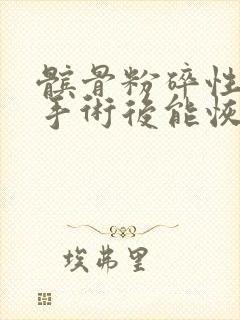 髌骨粉碎性
手術後能恢
埃弗里